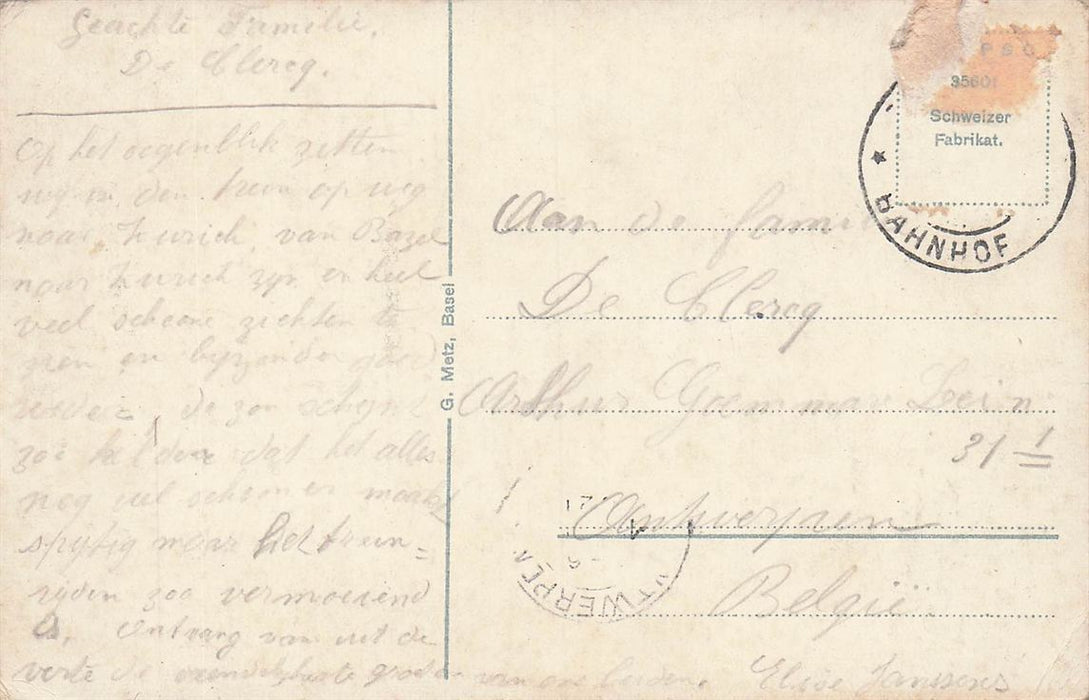 Geachte Familie.
De Clercq.
Op het oogenblik zetten
wy in den trein op weg
naar Zurich van Bazel
naar Zurich zyn er heel
veel schoone zichten te
zien en byzonder goed
weder, de zon schynt
zoo helder dat het alles
nog veel schooner maakt
spytig maar het trein=
ryden zoo vermoeiend
is. Ontvang van uit de
verte de vriendelykste groeten van ons beiden. Elise Janssens
G. Metz, Basel
35601
Schweizer
Fabrikat.
BAHNHOF
Aan de fami
De Clercq
Arthur Goemmar Lein
31 1
Antwerpen
België.
TWERPEN